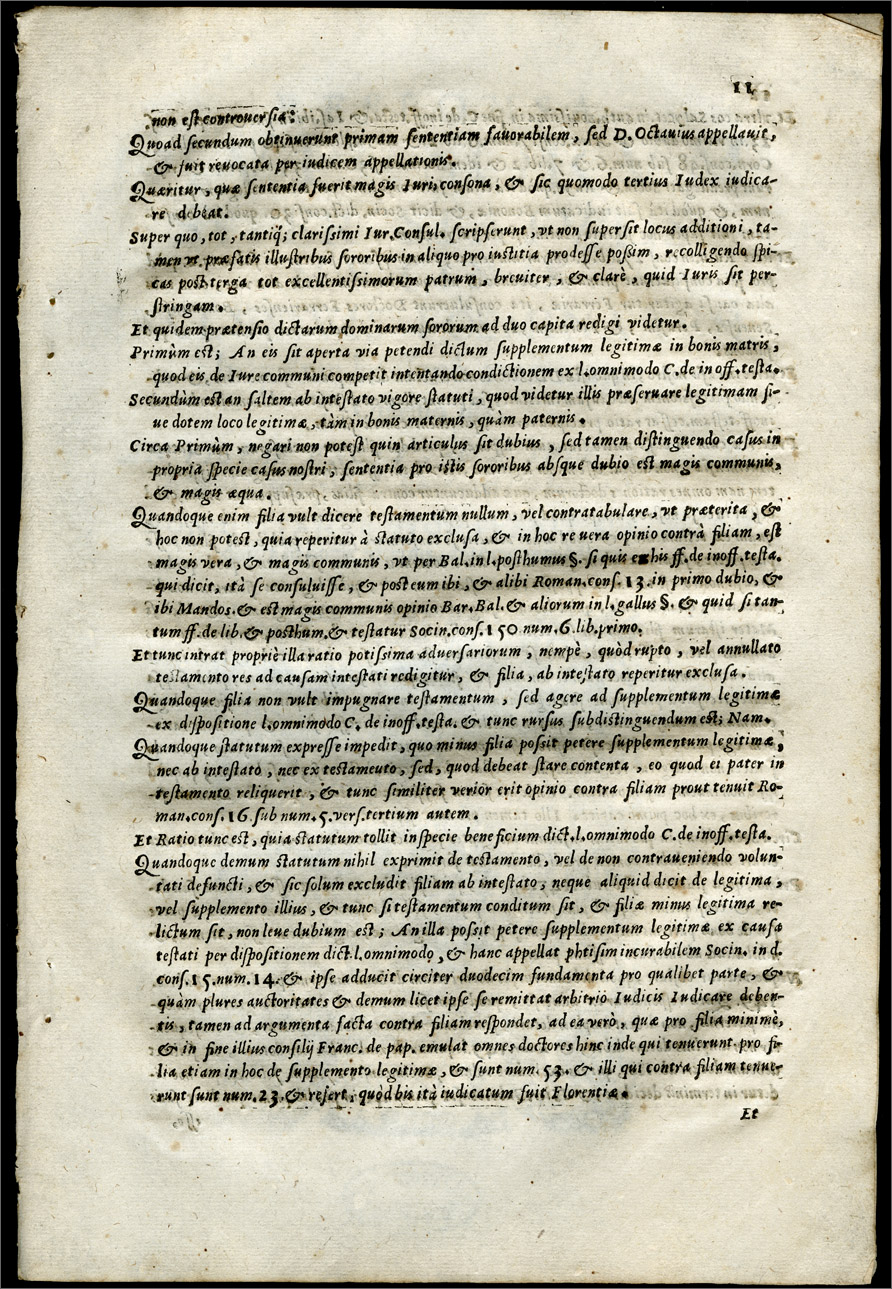 11
non est controversia:
Quoad secundum obtinuerunt primam sententiam fauorabilem, sed D. Octauius appellauit,
& fuit reuocata per iudicem appellationis.
Quæritur, quæ sententia fuerit magis Iuri consona, & sic quomodo tertius Iudex iudica-
re debeat.
Super quo, tot, tantiq; clarissimi Iur.Consul. scripserunt, vt non supersit locus additioni, ta-
men vt præfatis illustribus sororibus in aliquo pro iustitia prodesse possim, recolligendo spi-
cas post terga tot excellentissimorum patrum, breuiter, & clarè, quid Iuris sit per-
stringam.
Et quidem prætensio dictarum dominarum sororum ad duo capita redigi videtur.
Primùm est; An eis sit aperta via petendi dictum supplementum legitimæ in bonis matris,
quod eis de Iure communi competit intentando condictionem ex l.omnimodo C.de in off.testa.
Secundùm est an saltem ab intestato vigore statuti, quod videtur illis præseruare legitimam si-
ue dotem loco legitimæ, tàm in bonis maternis, quàm paternis.
Circa Primùm, negari non potest quin articulus sit dubius, sed tamen distinguendo casus in
propria specie casus nostri, sententia pro istis sororibus absque dubio est magis communis,
& magis æqua.
Quandoque enim filia vult dicere testamentum nullum, vel contratabulare, vt præterita, &
hoc non potest, quia reperitur à statuto exclusa, & in hoc re vera opinio contrà filiam, est
magis vera, & magis communis, vt per Bal.in l.posthumus §. si quis ex his ff.de inoff.testa.
qui dicit, ità se consuluisse, & post eum ibi, & alibi Roman.cons. 13.in primo dubio, &
ibi Mandos.& est magis communis opinio Bar.Bal.& aliorum in l.gallus §. & quid si tan-
tum ff.de lib.& posthum.& testatur Socin.cons.150 num.6.lib.primo.
Et tunc intrat propriè illa ratio potissima aduersariorum, nempè, quòd rupto, vel annullato
testamento res ad causam intestati redigitur, & filia, ab intestato reperitur exclusa.
Quandoque filia non vult impugnare testamentum, sed agere ad supplementum legitimæ
ex dispositione l.omnimodo C. de inoff.testa.& tunc rursus subdistinguendum est; Nam.
Quandoque statutum expresse impedit, quo minus filia possit petere supplementum legitimæ,
nec ab intestato, nec ex testameuto, sed, quod debeat stare contenta, eo quod ei pater in
testamento reliquerit, & tunc similiter verior erit opinio contra filiam prout tenuit Ro-
man.cons.16.sub num.5.vers.tertium autem.
Et Ratio tunc est, quia statutum tollit in specie beneficium dict.l.omnimodo C.de inoff.testa.
Quandoque demum statutum nihil exprimit de testamento, vel de non contraueniendo volun-
tati defuncti, & sic solum excludit filiam ab intestato, neque aliquid dicit de legitima,
vel supplemento illius, & tunc si testamentum conditum sit, & filiæ minus legitima re-
lictum sit, non leue dubium est; An illa possit petere supplementum legitimæ ex causa
testati per dispositionem dict.l.omnimodo, & hanc appellat phtisim incurabilem Socin. in d.
cons.15.num.14.& ipse adducit circiter duodecim fundamenta pro qualibet parte, &
quàm plures auctoritates & demum licet ipse se remittat arbitrio Iudicis Iudicare deben-
tis, tamen ad argumenta facta contra filiam respondet, ad ea verò, quæ pro filia minimè,
& in fine illius consilij Franc.de pap.emulat omnes doctores hinc inde qui tenuerunt pro fi-
lia etiam in hoc de supplemento legitimæ, & sunt num.53.& illi qui contra filiam tenue-
runt sunt num.23.& refert, quòd bis ità iudicatum fuit Florentiæ.
Et